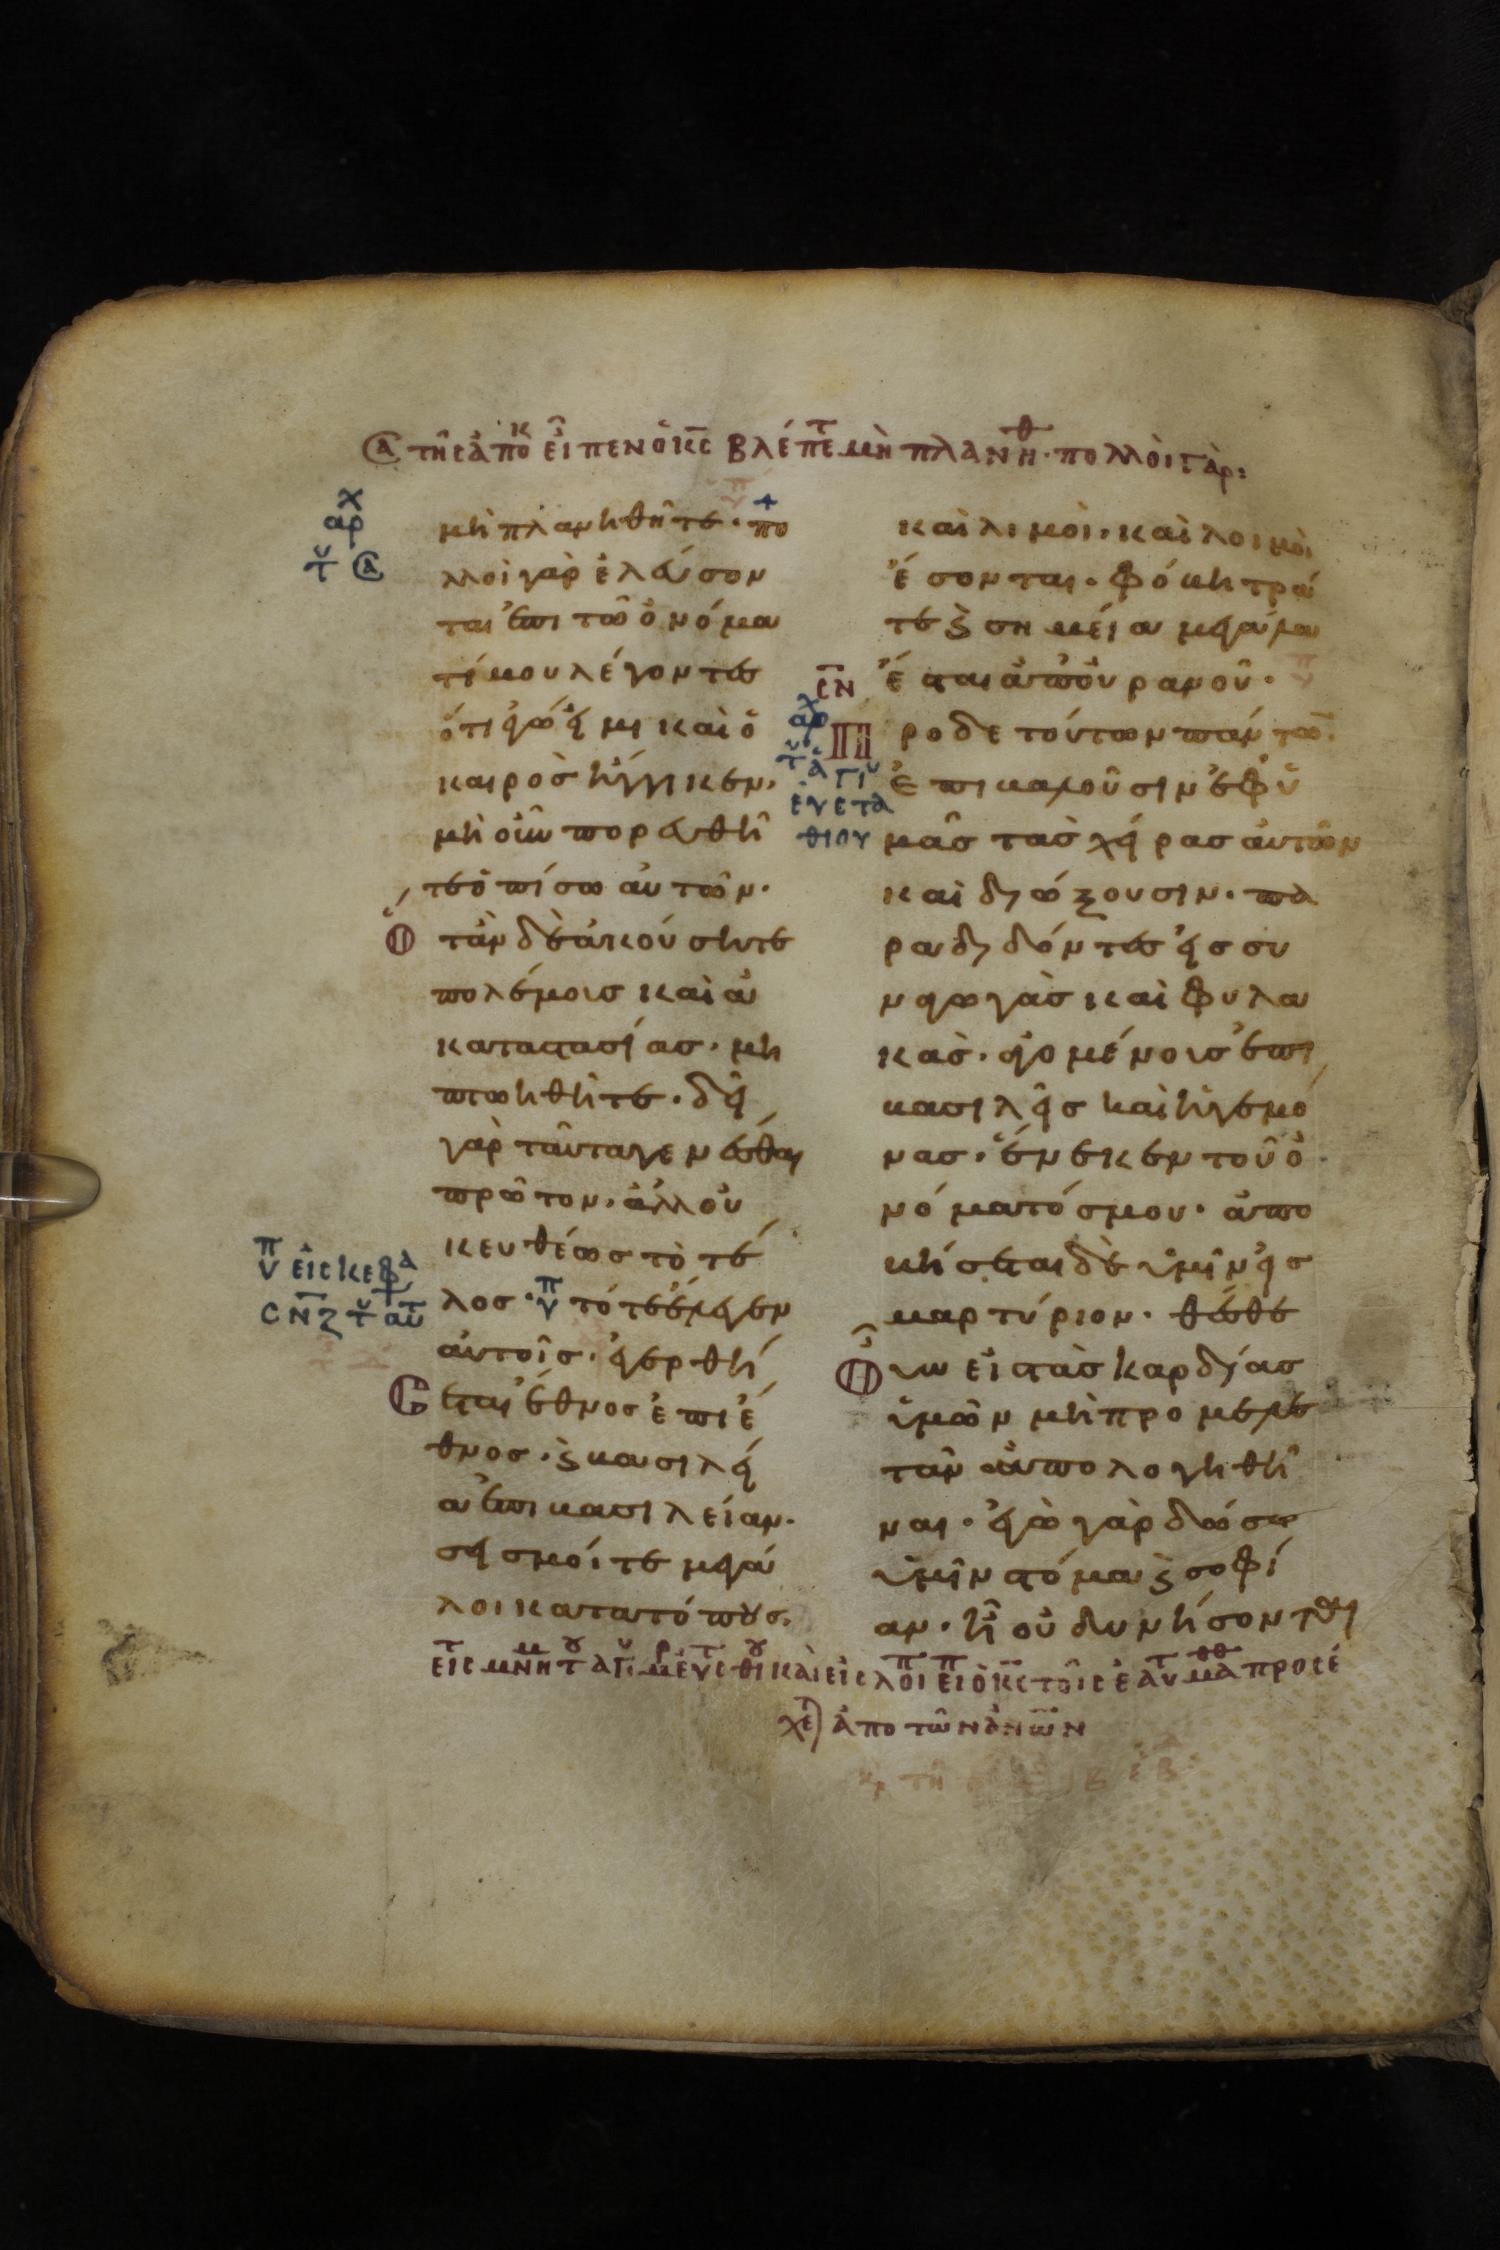 τῆς ἀπὸκ εἶπεν ὁ κς βλέπετ μὴ πλανηθ· πολλοὶ γὰρ:
αρχ
μὴ πλανηθῆτε· πο
λλοὶ γὰρ ἐλεύσον
ται ἐπὶ τῶ ὀνόμα
τί μου λέγοντες
ὅτι ἐγώ εἰμι καὶ ὁ
καιρὸς ἤγγικεν.
μὴ οὖν πορευθῆ
τε ὀπίσω αὐτῶν.
Ὅταν δὲ ἀκούσητε
πολέμοις καὶ ἀ
καταστασίας. μὴ
πτωηθῆτε. δεῖ
γὰρ ταῦτα γενέσθαι
πρῶτον. ἀλλ οὐ
κ ευθέως τὸ τέ
λος. τότε ἔλεγεν
αὐτοῖς. ἐγερθή
Εται ἔθνος ἐπὶ ἔ
θνος. ϗ βασιλεί
α ἐπὶ βασιλείαν.
σεισμοί τε μεγά
λοι κατα τόπους.
καὶ λιμοὶ. καὶ λοιμοὶ
ἔσονται. φόβητρά
τε ϗ σημεία μεγάλα
ἔσται ἀπ οὐρανοῦ.
σν
Προ δε τούτων πάντων
ἐπιβαλοῦσιν ἐφ ὑ
μᾶς τὰς χείρας αὐτῶν
καὶ διώξουσιν. πα
ραδιδόντες εἰς συ
ναγωγὰς καὶ φυλα
κὰς. ἀγομένοις ἐπὶ
βασιλεῖς καὶ ἡγεμό
νας. ἕνεκεν τοῦ ὀ
νόματός μου. ἀπο
βήσεται δὲ ὑμῖν εἰς
μαρτύριον. θέσθε
Οὖν εἰς τὰς καρδίας
ὑμῶν μὴ προμελε
τᾶν ἀπολογηθῆ
ναι. ἐγὼ γὰρ δώσω
ὑμῖν στόμα ϗ σοφί
αν. ἧ οὐ δυνήσονται
χετ ἀπὸ τῶν ἀνων